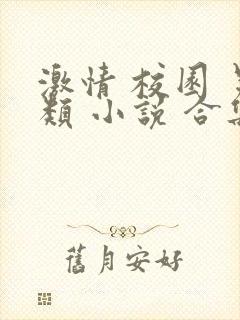 激情 校園
類 小說 合
舊月安好